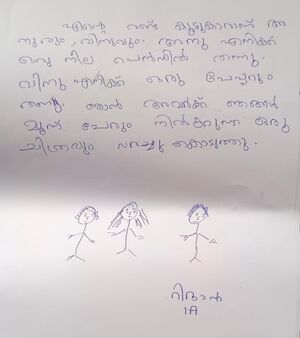 എന്റെ രണ്ട് കൂട്ടുകാരാണ് അ
നുവും, വിനുവും. അനു എനിക്ക്
ഒരു നീല പെൻസിൽ തന്നു.
വിനു എനിക്ക് ഒരു പേപ്പറും
തന്നു ഞാൻ അവർക്ക് ഞങ്ങൾ
മൂന്ന് പേരും നിൽക്കുന്ന ഒരു
ചിത്രവും വരച്ചു കൊടുത്തു.
റിദാൻ
1A